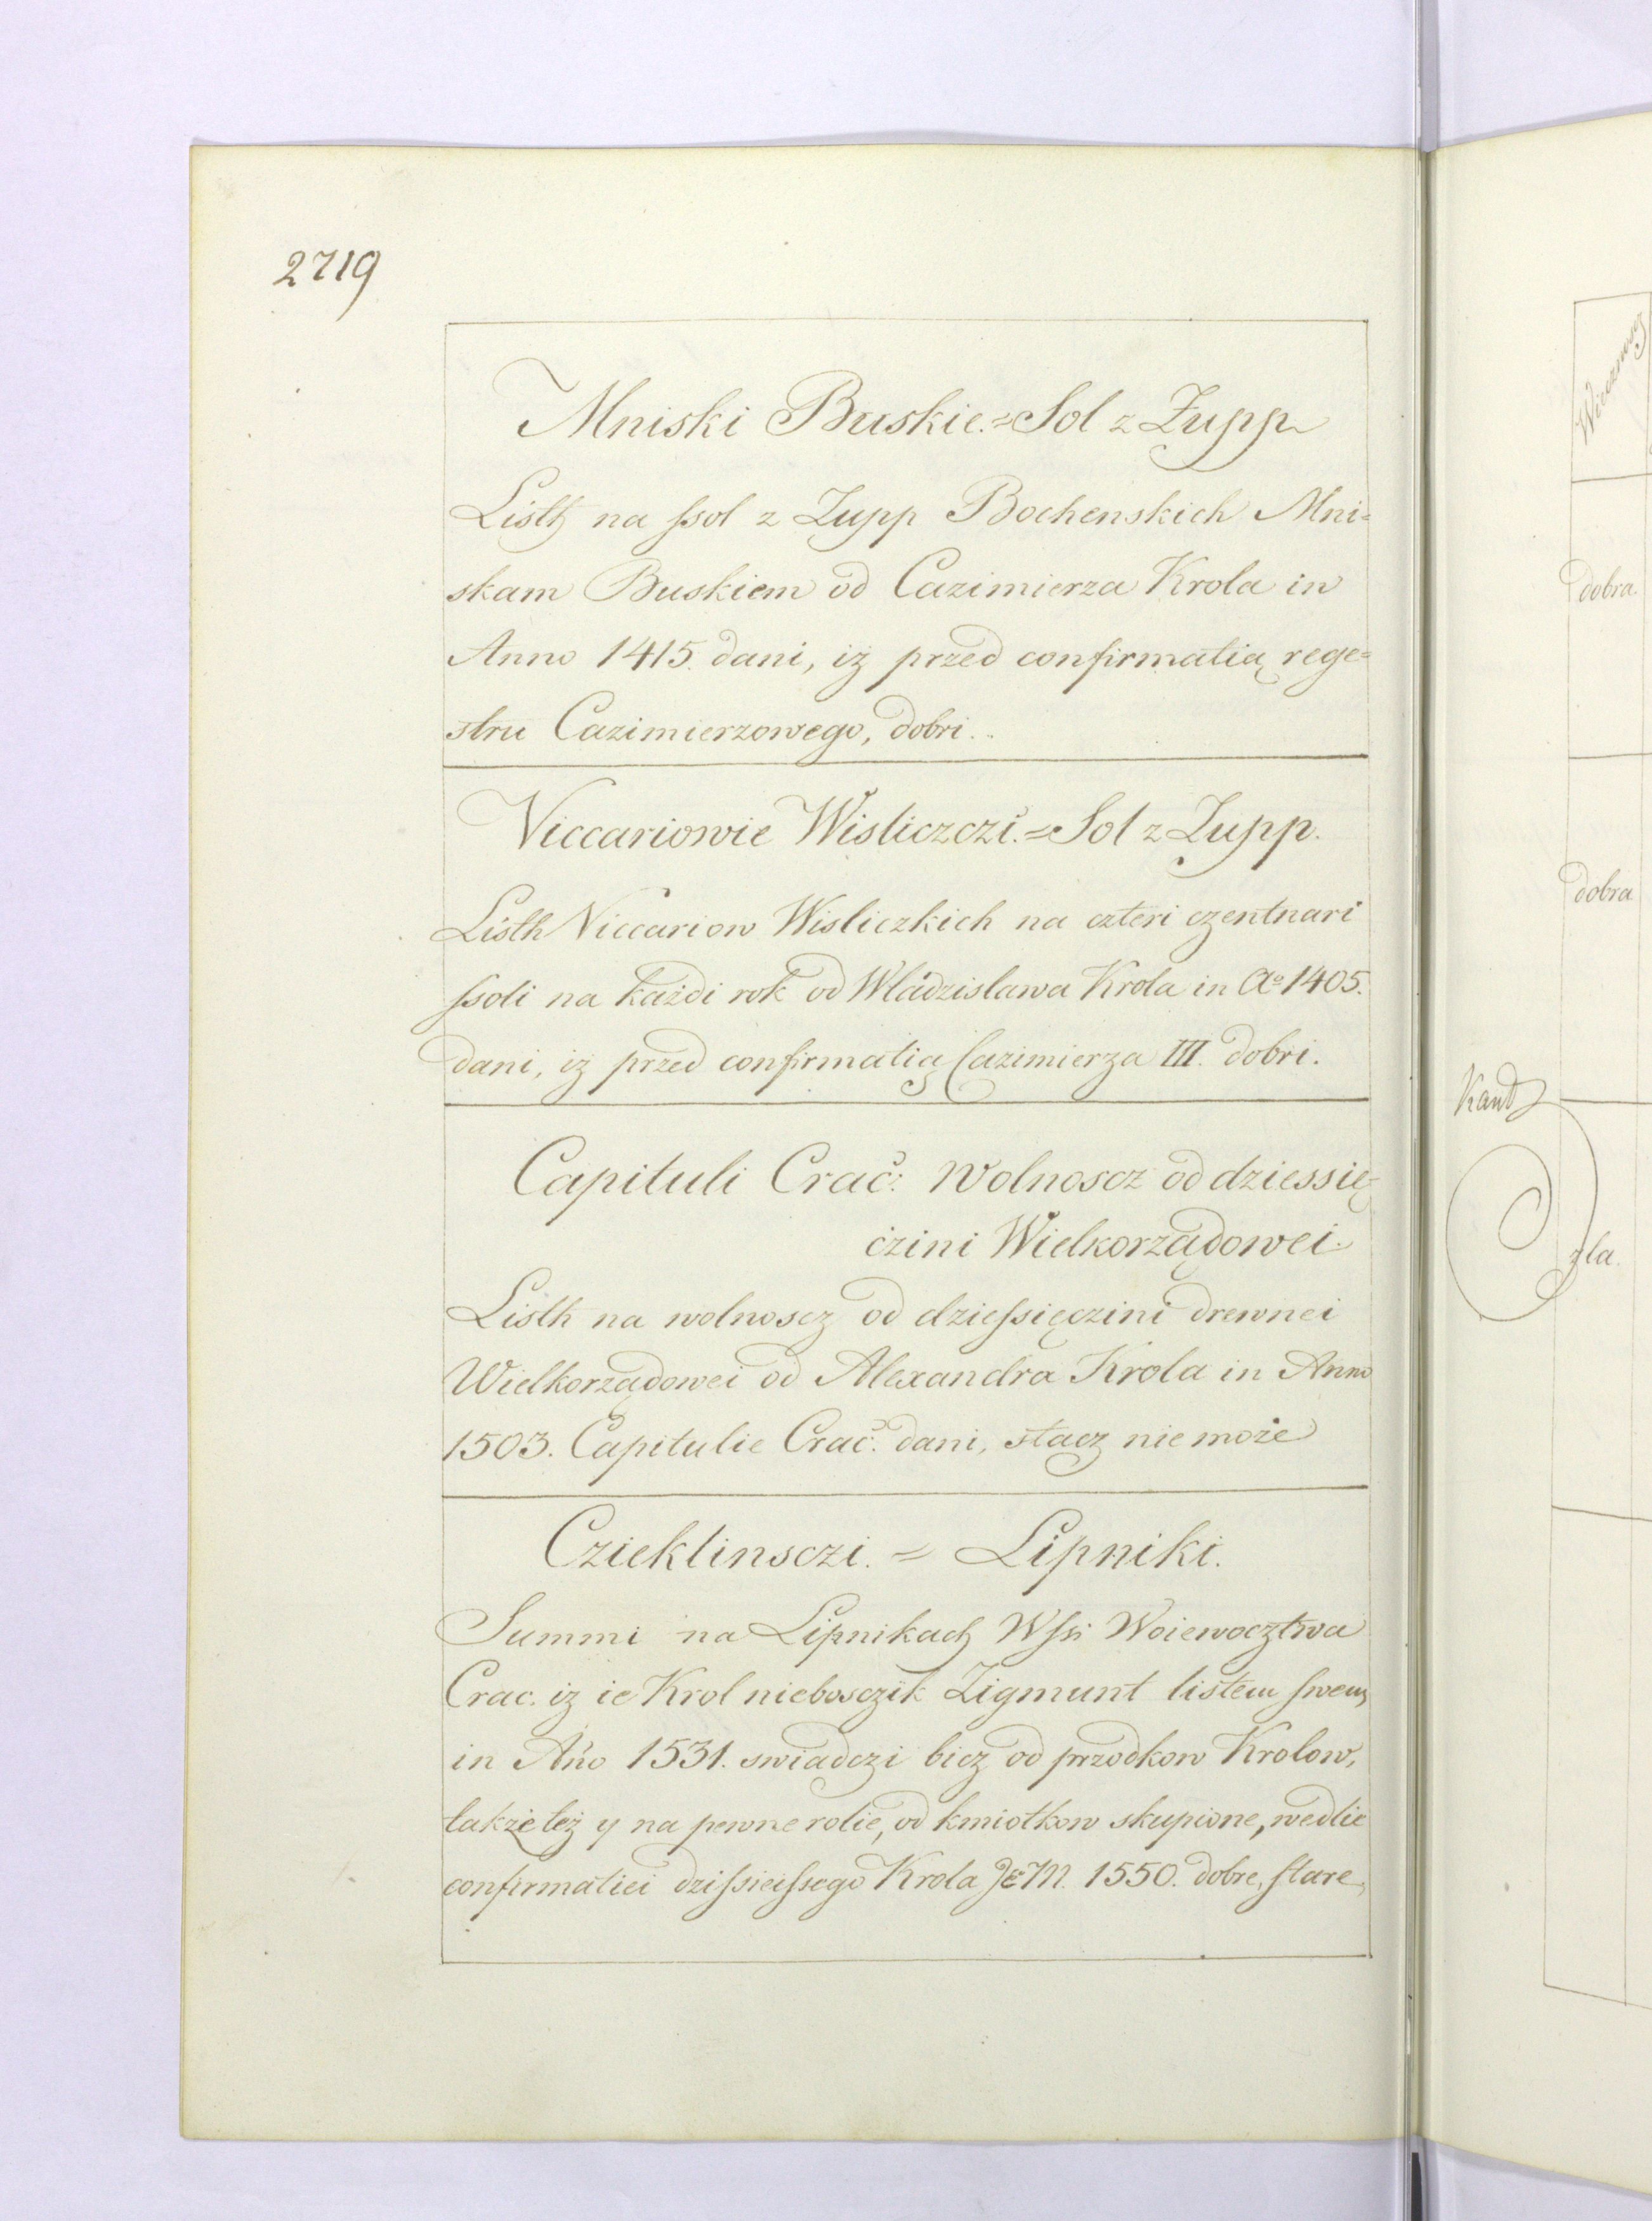 2719
Mniski Buskie.=Sol z Żupp
Listh na ssol z Zupp Bochenskich Mni=
skam Buskiem od Cazimierza Krola in
Anno 1415. dani, iż przed confirmatią rege=
stru Cazimierzowego, dobri..
Viccariowie Wisliczczi.=Sol z Zupp.
Listh Viccariow Wisliczkich na czteri czentnari
ssoli na każdi rok od Wladzislawa Krola in Ao 1405.
dani, iz przed confirmatią Cazimierza III. dobri.
Capituli Crac: Wolnoscz od dziessię=
czini Wielkorządowei.
Listh na wolnoscz od dziessięczini drewnei
Wielkorządowei od Alexandra Krola in Anno
1503. Capitulie Crac: dani, stacz nie może
Czieklinsczi. = Lipniki.
Summi na Lipnikach Wssi Woiewocztwa
Crac. iz ie Krol nieboszczik Zigmunt listem swem
in Ano 1531. swiadczi bicz od przodkow Krolow,
takze też y na pewne rolie, od kmiotkow skupione, wedlie
confirmatiei dzissieissego Krola JEM. 1550. dobre, stare,
Wieczność
dobra
dobra
Kand
zla.